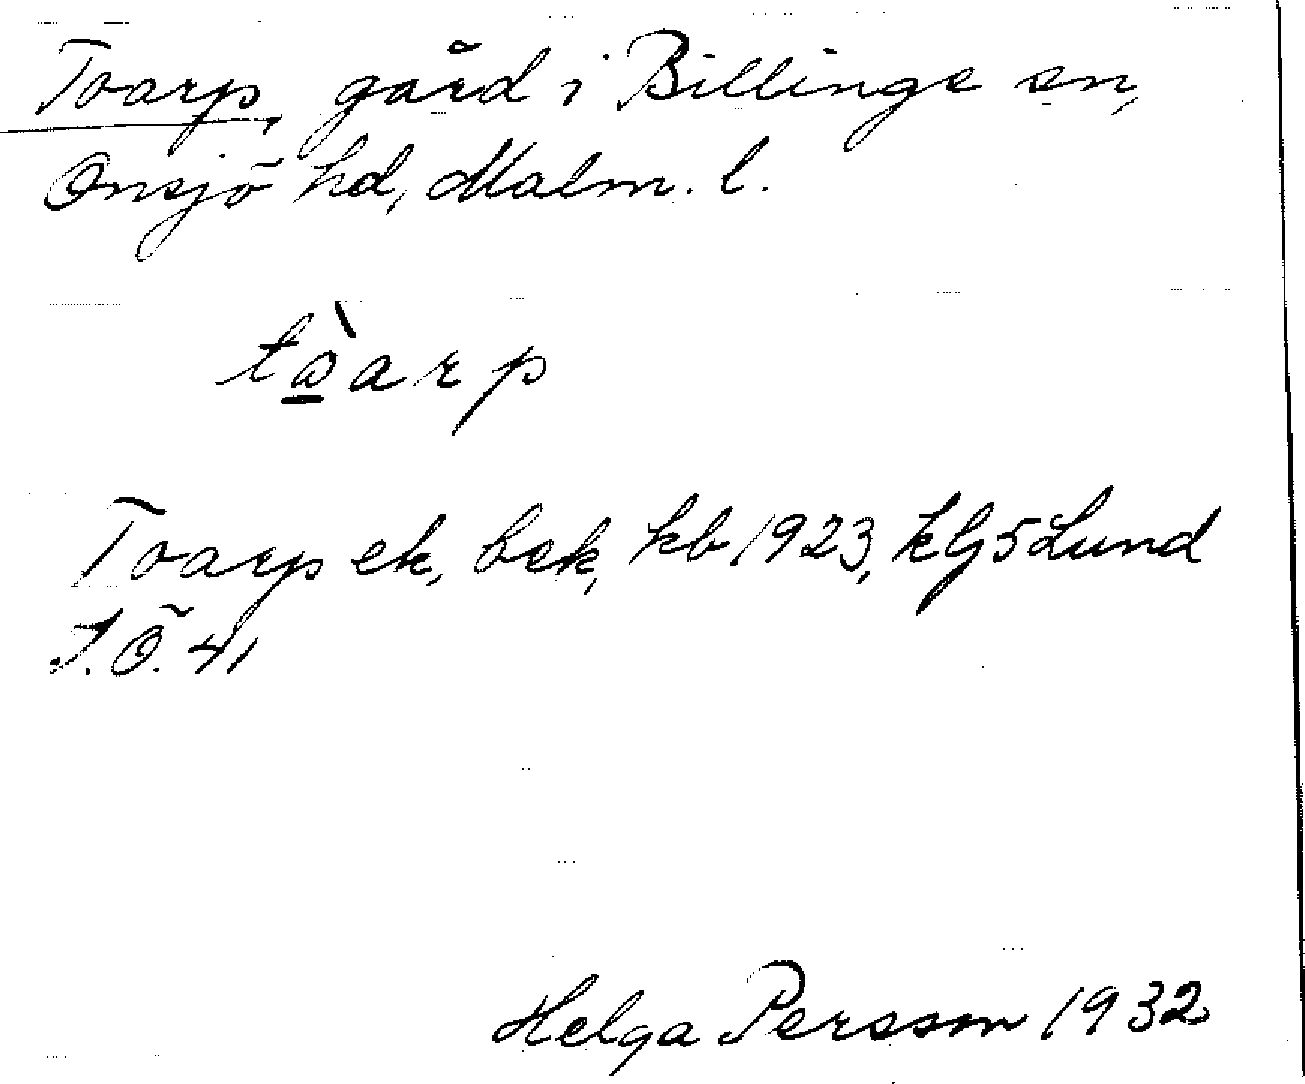 Toarp, gård i Billinge sn,
Onsjö hd, Malm. l.
tòarp
Toarp ek, bek, kb 1923, kG5 Lund
J.Ö. 41
Helga Persson 1932